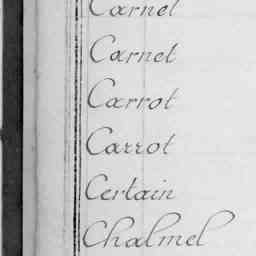 Carnel
Carnet
Carrot
Carrot
Certain
Chalmel